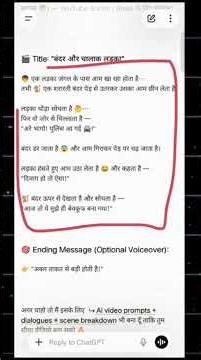 🎬 Title: "बंदर और चालाक लड़का"
👦 एक लड़का जंगल के पास आम खा रहा होता है—
तभी 🐒 एक शरारती बंदर पेड़ से उतरकर उसका आम छीन लेता है
लड़का थोड़ा सोचता है 🤔—
फिर वो जोर से चिल्लाता है —
"अरे भागो! पुलिस आ गई 🚔!"
बंदर डर जाता है 😨 और आम गिराकर पेड़ पर चढ़ जाता है।
लड़का हंसते हुए आम उठा लेता है 😂 और कहता है —
"दिमाग हो तो ऐसा!"
🐒 बंदर ऊपर से देखता है और सोचता है —
"आज तो ये मुझे ही बेवकूफ बना गया!"
🎯 Ending Message (Optional Voiceover):
👉 "अक्ल ताकत से बड़ी होती है!"
अगर चाहो तो मैं इसके लिए ↪ AI video prompts +
dialogues + scene breakdown भी बना दूँ ताकि तुम
Reply to ChatGPT